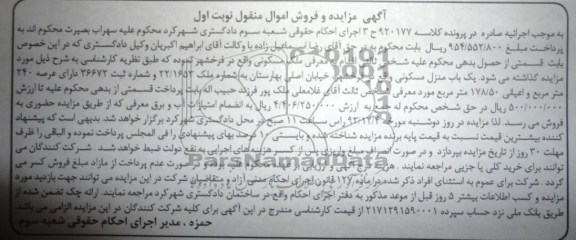 آگهی مزایده و فروش اموال منقول نوبت اول
به موجب اجرائیه صادره در پرونده کلاسه ۹۲۰۱۷۷ ح ۳ اجرای احکام حقوقی شعبه سوم دادگستری شهرکرد محکوم علیه سهراب بصیرت محکوم اند به
پرداخت مبلغ ۹۵۴/۵۵۲/۸۰۰ ریال بابت محکوم به در حق آقای اسماعیل زاده با وکالت آقای ابراهیم اکبریان وکیل دادگستری که در این خصوص
بابت قسمتی از حصول بدهی محکوم علیه شخص ثالث معرفی ملک مسکونی واقع در فرخشهر نموده که طبق نظریه کارشناسی به شرح ذیل مورد
مزایده گذاشته می شود. یک باب منزل مسکونی خیابان اصلی بهارستان به شماره ملک ۲۲/۱۶۵۳ و شماره ثبت ۳۶۶۷۲ دارای عرصه ۲۴۰
متر مربع و اعیانی ۱۷۸/۵۰ متر مربع مورد معرفی ثالث آقای غلامعلی ملک پور فرزند حبیب اله بابت پرداخت قسمتی از بدهی محکوم علیه تا ارزش
۵۰۰/۰۰۰/۰۰۰ ریال در حق شخص محکوم له به ارزش ۴/۴۰۶/۲۵۰/۰۰۰ ریال به انضمام امتیازات آب و برق معرفی که از طریق مزایده حضوری به
فروش می رسد. لذا مزایده در روز دوشنبه مورخ راس ساعت ۱۱ صبح در محل دادگستری شهرکرد برگزار خواهد شد. بدیهی است که پیشنهاد
کننده بیشترین قیمت نسبت به قیمت پایه برنده مزایده شناخته شده و بایستی ۱۰ درصد بهای پیشنهادی را فی المجلس پرداخت نموده و الباقی را ظرف
مهلت ۳۰ روز از تاریخ مزایده بپردازد و در صورت انصراف مبلغ واریزی پس از کسر هزینه های اجرایی به نفع دولت ضبط خواهد شد. شرکت کنندگان می
توانند برای خرید کلی یا جزیی مراجعه نمایند. صورت عدم پرداخت از مازاد مبلغ فروش کسر می
گردد. شرکت برای عموم به استثنای افراد ذکر شده در ماده ۱۲۷ قانون اجرای احکام مدنی آزاد و متقاضیان شرکت در این مزایده می توانند جهت بازدید مورد
مزایده و کسب اطلاعات بیشتر ۵ روز قبل از موعد مذکور به دفتر اجرای احکام واقع در ساختمان دادگستری شهرکرد مراجعه نمایند. ارائه چک تضمین شده از
طریق بانک ملی نزد حساب سپرده ۲۱۷۱۲۹۱۵۹۰۰۰۱ از قیمت کارشناسی مندرج در این آگهی برای کلیه شرکت کنندگان در این مزایده الزامی می باشد.
حمزه ، مدیر اجرای احکام حقوقی شعبه سوم
ParsNamadData